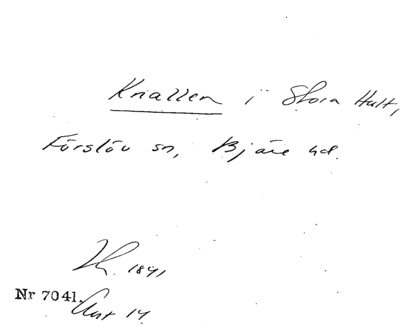 Knallen i Stora Hult,
Förslöv sn, Bjäre hd.
1841
Nr 7041.
14